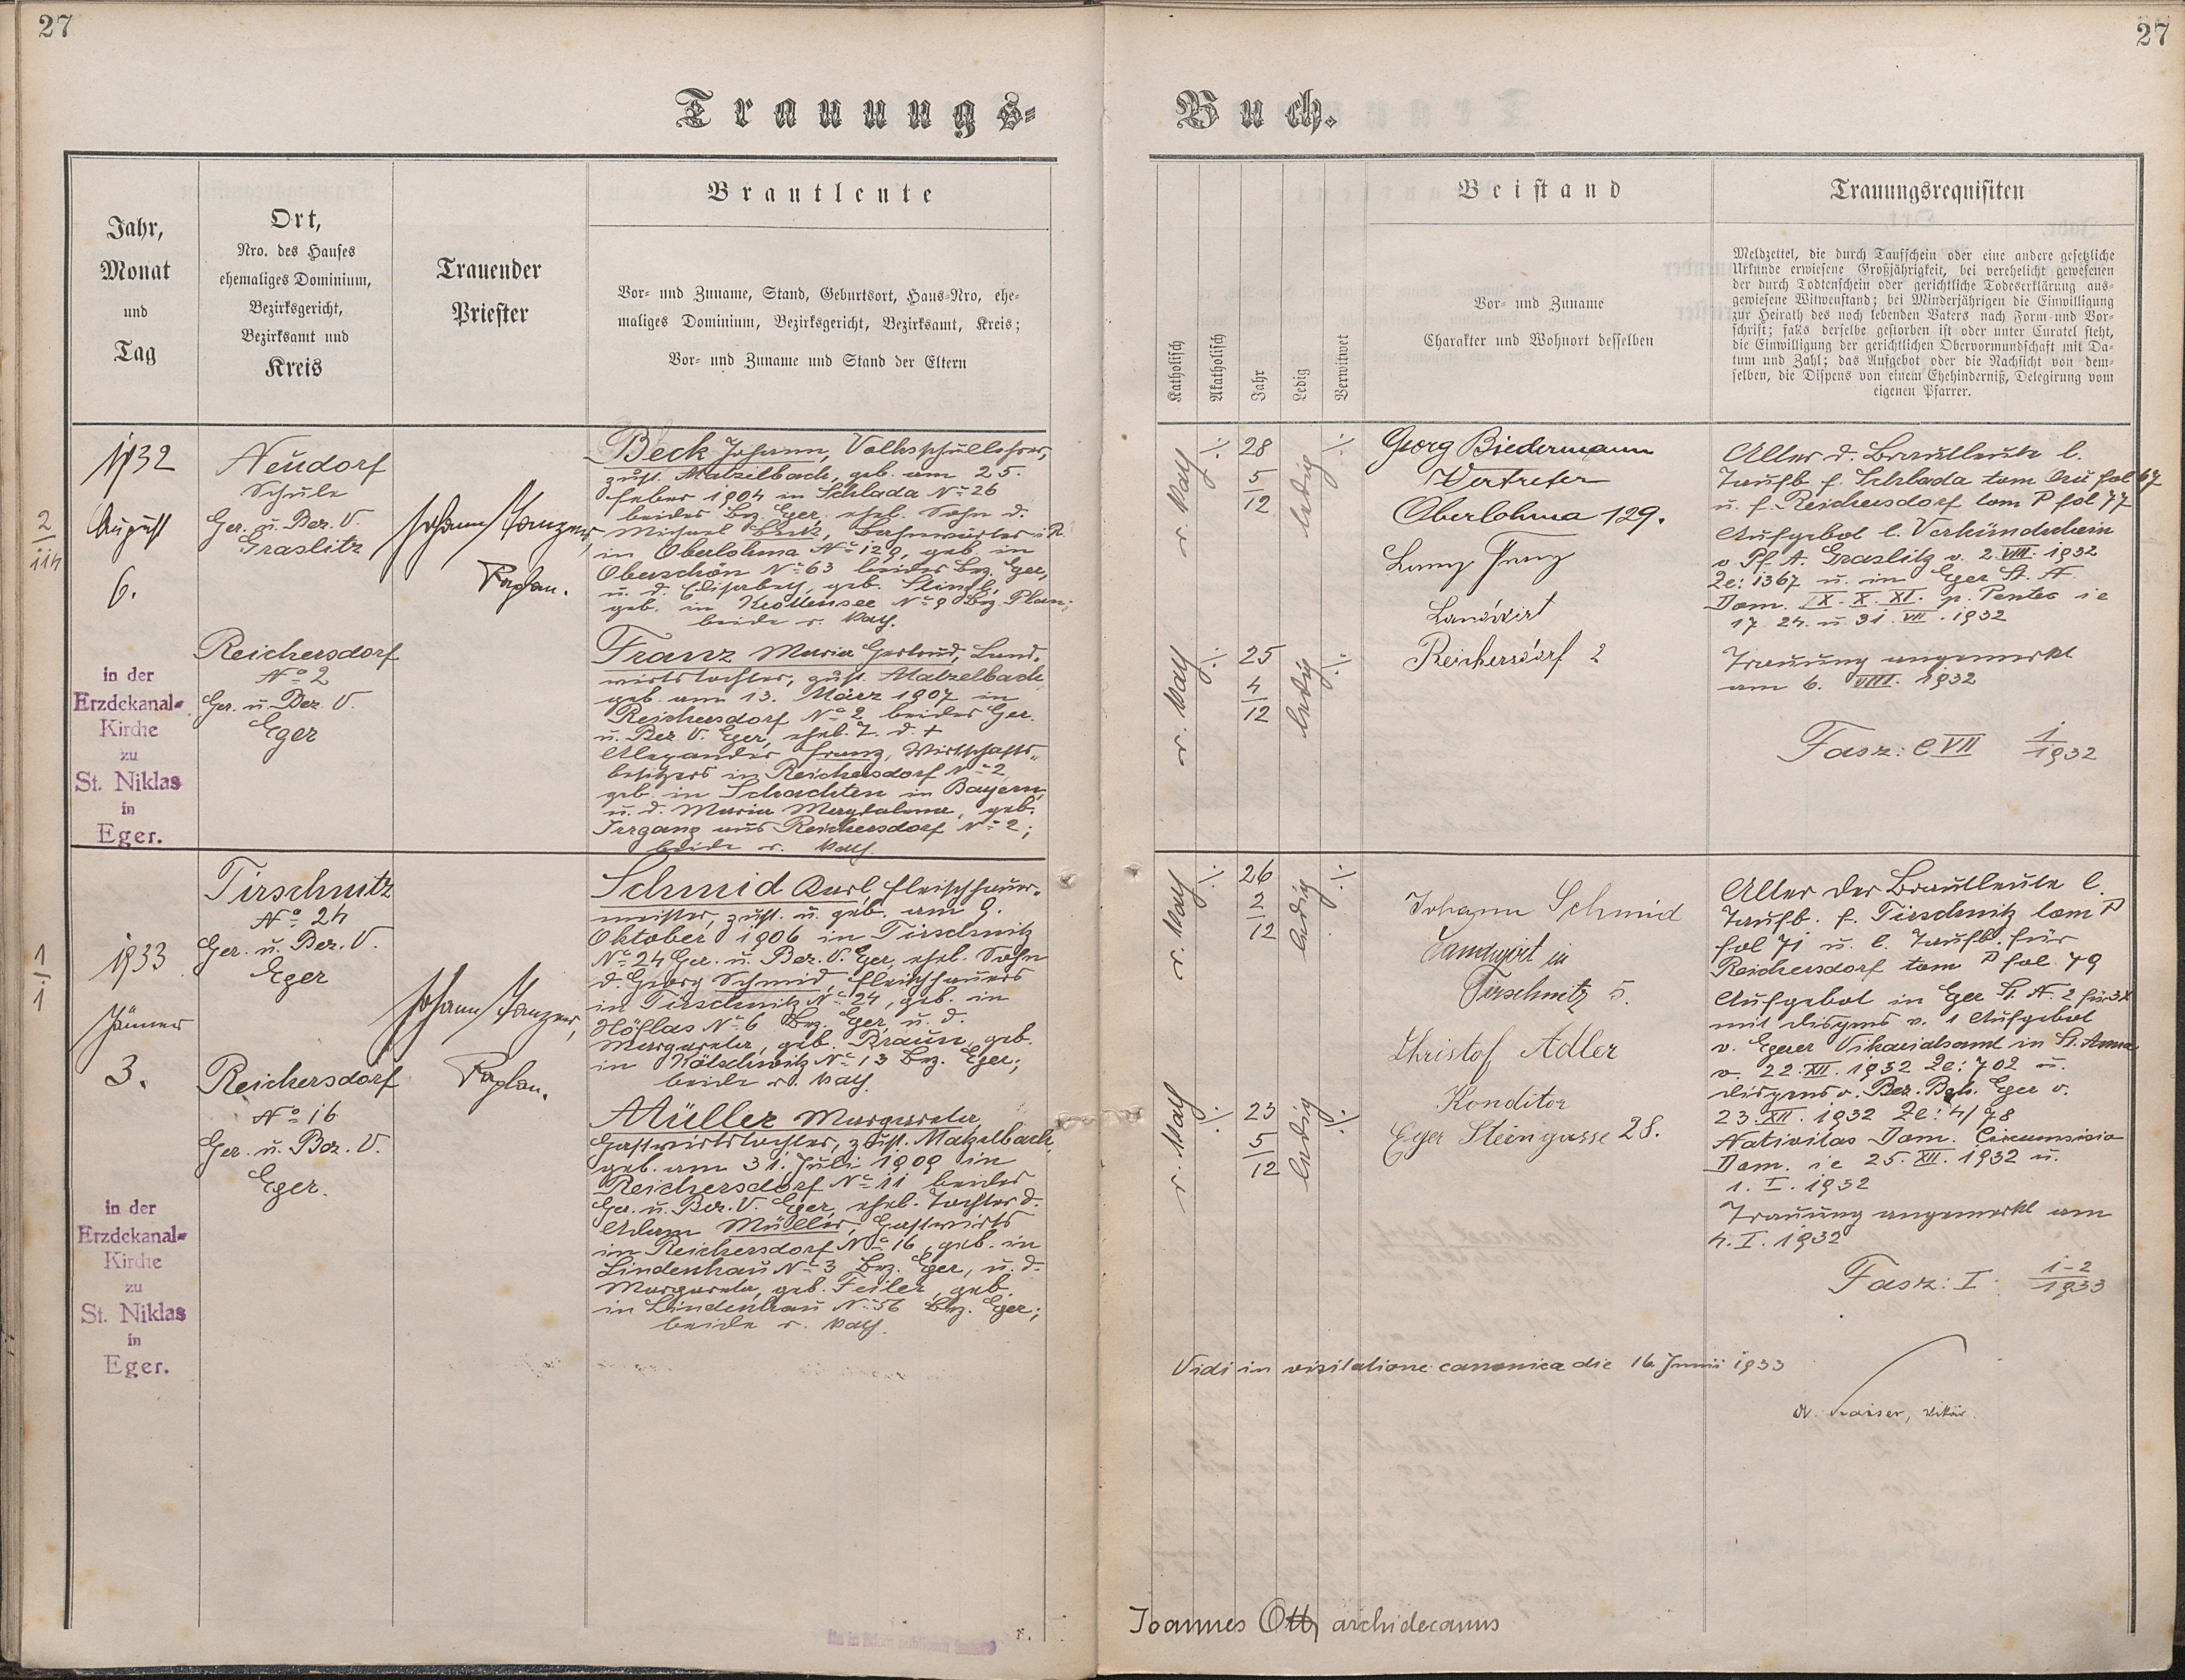 27
27
Trauungs-
Buch.
Jahr,
Monat
und
Tag
Ort,
Nro. des Hauses
ehemaliges Dominium,
Bezirksgericht,
Bezirksamt und
Kreis
Trauender
Priester
Brautleute
Vor- und Zuname, Stand, Geburtsort, Haus-Nro, ehe-
maliges Dominium, Bezirksgericht, Bezirksamt, Kreis;
Vor- und Zuname und Stand der Eltern
Katholisch
Akatholisch
Jahr
Ledig
Verwitwet
Beistand
Vor- und Zuname
Charakter und Wohnort desselben
Trauungsrequisiten
Meldzettel, die durch Taufschein oder eine andere gesetzliche
Urkunde erwiesene Großjährigkeit, bei verehelicht gewesenen
der durch Todtenschein oder gerichtliche Todeserklärung aus-
gewiesene Witwenstand; bei Minderjährigen die Einwilligung
zur Heirath des noch lebenden Vaters nach Form und Vor-
schrift; falls derselbe gestorben ist oder unter Curatel steht,
die Einwilligung der gerichtlichen Obervormundschaft mit Da-
tum und Zahl; das Aufgebot oder die Nachsicht von dem-
selben, die Dispens von einem Ehehinderniß, Delegirung vom
eigenen Pfarrer.
2
114
1932
August
6.
in der
Erzdekanal-
Kirche
zu
St. Niklas
in
Eger.
Neudorf
Schule
Ger. u. Bez. V.
Graslitz
Reichersdorf
No 2
Ger. u. Bez. V.
Eger
Johann Tanzer,
Kaplan.
Beck Johann, Volksschullehrer,
zust. Matzelbach, geb. am 25.
Feber 1904 in Schlada No 26
beides Bez. Eger, ehel. Sohn d.
Michael Beck, Bahnwärter i. R.
in Oberlohma No 129, geb. in
Oberschön No 63 beides Bez. Eger,
u. d. Elisabeth, geb. Stingl,
geb. in Krottensee No 9 Bez. Plan;
beide r. kath.
Franz Maria Gertrud, Land-
wirtstochter, zust. Matzelbach
geb. am 13. März 1907 in
Reichersdorf No 2 beides Ger.
u. Bez. V. Eger, ehel. T. d. +
Alexander Franz, Wirtschafts-
besitzers in Reichersdorf No 2,
geb. in Schachten in Bayern,
u. d. Maria Magdalena, geb.
Irrgang aus Reichersdorf No 2;
beide r. kath.
r. kath
·/.
28
5
12
ledig
·/.
r. kath
·/.
25
4
12
ledig
·/.
Georg Biedermann
Vertreter
Oberlohma 129.
Franz
Landwirt
Reichersdorf 2
Alter d. Brautleute l.
Taufb. f. Schlada tom fol 67
u. f. Reichersdorf tom fol 77
Aufgebot l. Verkündschein
v. Pf. A. Graslitz v. 2. VIII. 1932
Ze: 1367 u. in Eger St. N.
Dom. IX. X. XI. p. Pentec ie
17. 24. u. 31. VII. 1932
Trauung angemerkt
am 6. VIII. 1932
Fasz: C VII 1/1932
1
1
1933
Jänner
3.
in der
Erzdekanal-
Kirche
zu
St. Niklas
in
Eger.
Tirschnitz
No 24
Ger. u. Bez. V.
Eger
Reichersdorf
No 16
Ger. u. Bez. V.
Eger.
Johann Tanzer,
Kaplan.
Schmid Karl, Fleischhauer-
meister, zust. u. geb. am 9.
Oktober 1906 in Tirschnitz
No 24 Ger. u. Bez. V. Eger, ehel. Sohn
d. Georg Schmid, Fleischhauers
in Tirschnitz No 24, geb. in
Höflas No 6 Bez. Eger, u. d.
Margareta, geb. Braun, geb.
in Kötschwitz No 13 Bez. Eger;
beide r. kath.
Müller Margareta,
Gastwirtstochter, zust. Matzelbach,
geb. am 31. Juli 1909 in
Reichersdorf No 11 beides
Ger. u. Bez. V. Eger, ehel. Tochter d.
Adam Müller, Gastwirts
in Reichersdorf No 16, geb. in
Lindenhau No 3 Bez. Eger, u. d.
Margareta, geb. Feiler, geb.
in Lindenhau No 56 Bez. Eger;
beide r. kath.
r. kath
·/.
26
2
12
ledig
·/.
r. kath
·/.
23
5
12
ledig
·/.
Johann Schmid
Landwirt in
Tirschnitz 5.
Christof Adler
Konditor
Eger Steingasse 28.
Alter der Brautleute l.
Taufb. f. Tirschnitz tom
fol 71 u. l. Taufb. für
Reichersdorf tom fol. 79
Aufgebot in Eger St. N. 2 für 3x
mit Dispens v. 1 Aufgebot
v. Egerer Vikariatsamt in St. Anna
v. 22. XII. 1932 Ze: 702 u.
Dispens v. Bez. Beh. Eger v.
23. XII. 1932 Ze: 4/98
Nativitas Dom. Circumsisio
Dom. ie 25. XII. 1932 u.
1. I. 1932
Trauung angemerkt am
4. I. 1932
Fasz: I 1-2/1933
Vidi in visitatione canonica die 16 Junii 1933
Kaiser, Vikär.
Joannes Ott, archidecanus